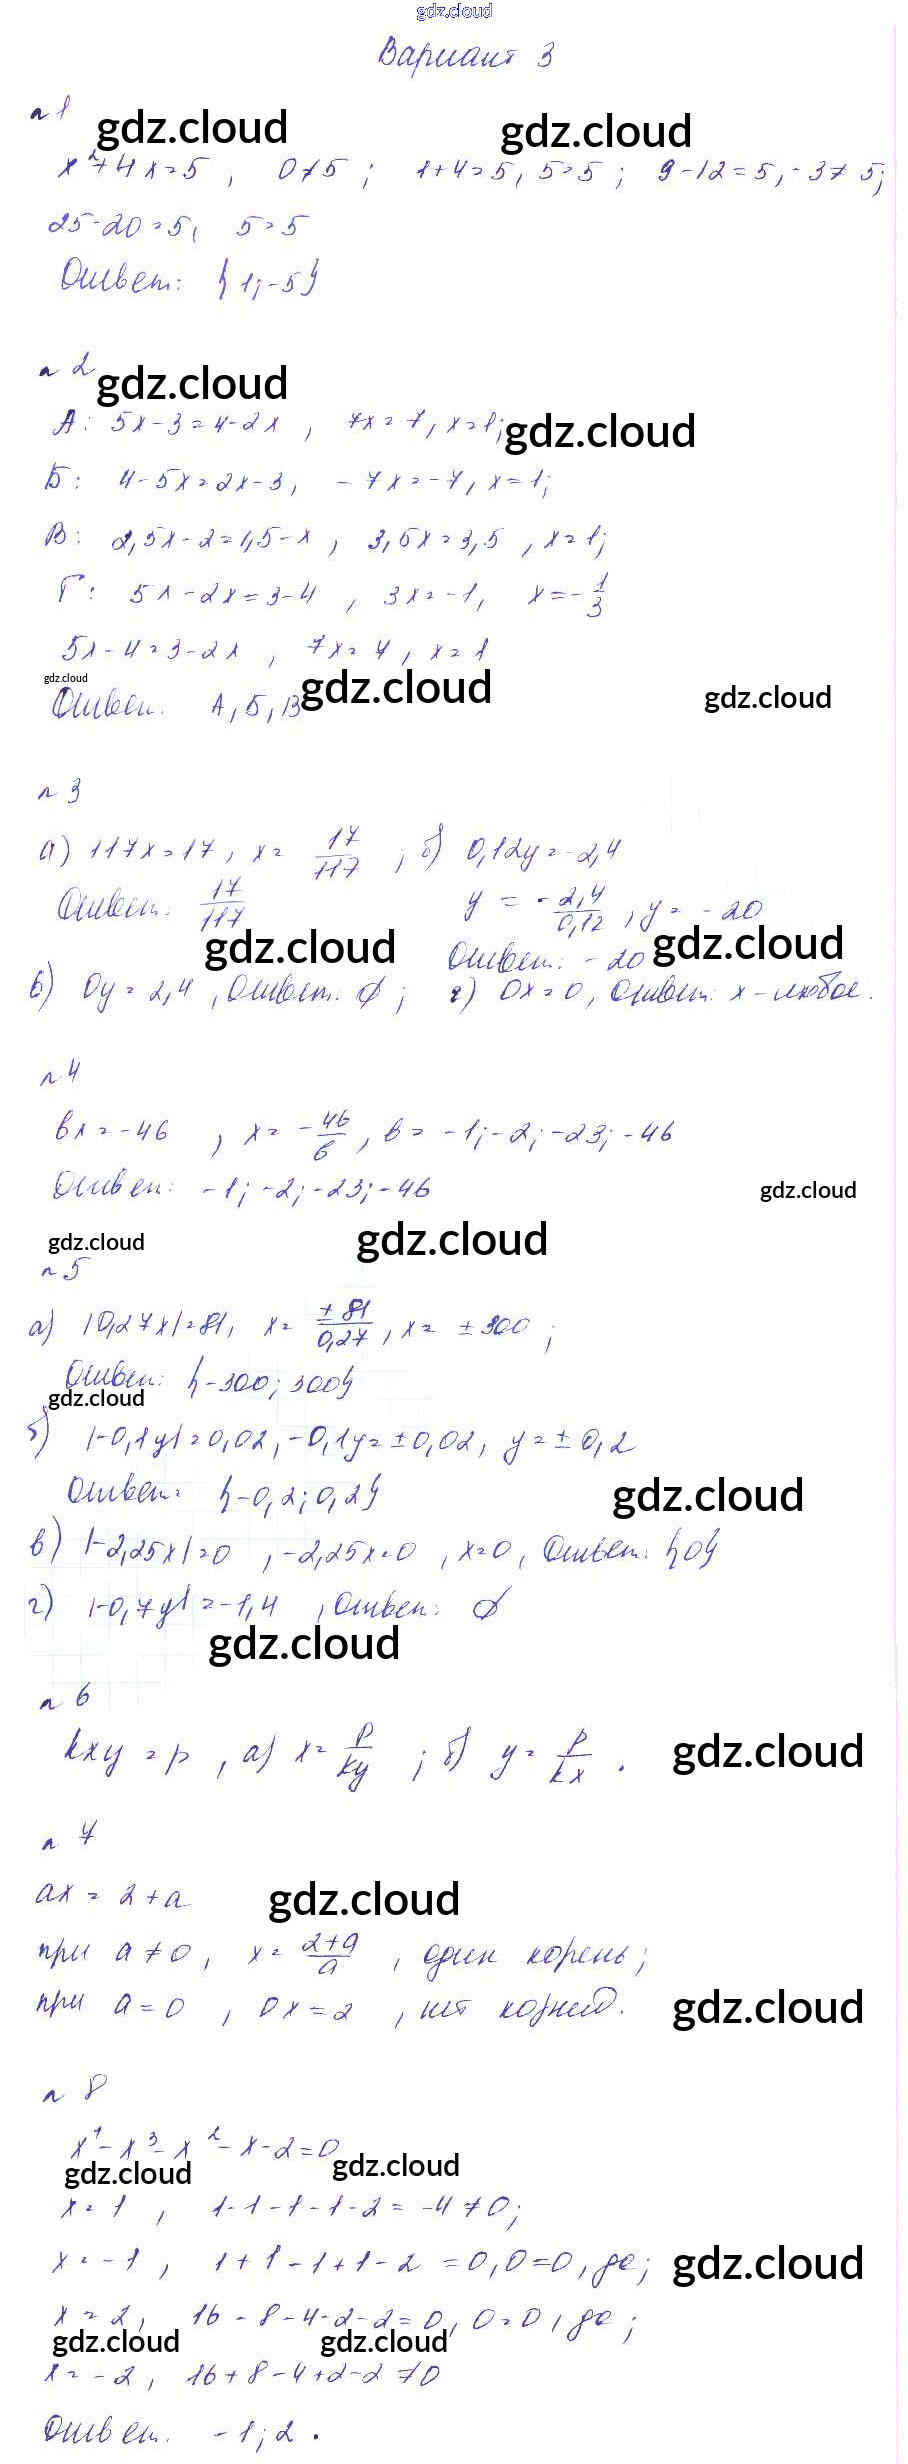 gdz.cloud
Вариант 3
n 1
gdz.cloud gdz.cloud
x²+4x=5, 0≠5; 1+4=5, 5=5; 9-12=5, -3≠5;
25-20=5, 5=5
Ответ: {1;-5}
n 2
gdz.cloud
А: 5x-3=4-2x, 7x=7, x=1;
gdz.cloud
Б: 4-5x=2x-3, -7x=-7, x=1;
В: 2,5x-2=1,5-x, 3,5x=3,5, x=1;
Г: 5x-2x=3-4, 3x=-1, x=-1/3
5x-4=3-2x, 7x=7, x=1
gdz.cloud gdz.cloud gdz.cloud
Ответ: А, Б, В
n 3
а) 117x=17, x=17/117; б) 0,12y=-2,4
Ответ: 17/117 y=-2,4/0,12, y=-20
gdz.cloud gdz.cloud
Ответ: -20
в) 0y=2,4, Ответ: ∅; г) 0x=0, Ответ: x-любое.
n 4
вx=-46, x=-46/в, в=-1;-2;-23;-46
Ответ: -1;-2;-23;-46
gdz.cloud
gdz.cloud gdz.cloud
n 5
а) |0,27x|=81, x=±81/0,27, x=±300;
Ответ: {-300; 300}
gdz.cloud
б) |-0,1y|=0,02, -0,1y=±0,02, y=±0,2
Ответ: {-0,2; 0,2}
gdz.cloud
в) |-2,25x|=0, -2,25x=0, x=0, Ответ: {0}
г) |-0,7y|=-1,4, Ответ: ∅
gdz.cloud
n 6
kxy=p, а) x=p/ky; б) y=p/kx.
gdz.cloud
n 7
ax=2+a
gdz.cloud
при a≠0, x=2+a/a, один корень;
при a=0, 0x=2, нет корней.
gdz.cloud
n 8
x⁴-x³-x²-x-2=0
gdz.cloud gdz.cloud
x=1, 1-1-1-1-2=-4≠0;
x=-1, 1+1-1+1-2=0, 0=0, да;
gdz.cloud
x=2, 16-8-4-2-2=0, 0=0, да;
gdz.cloud gdz.cloud
x=-2, 16+8-4+2-2≠0
Ответ: -1; 2.